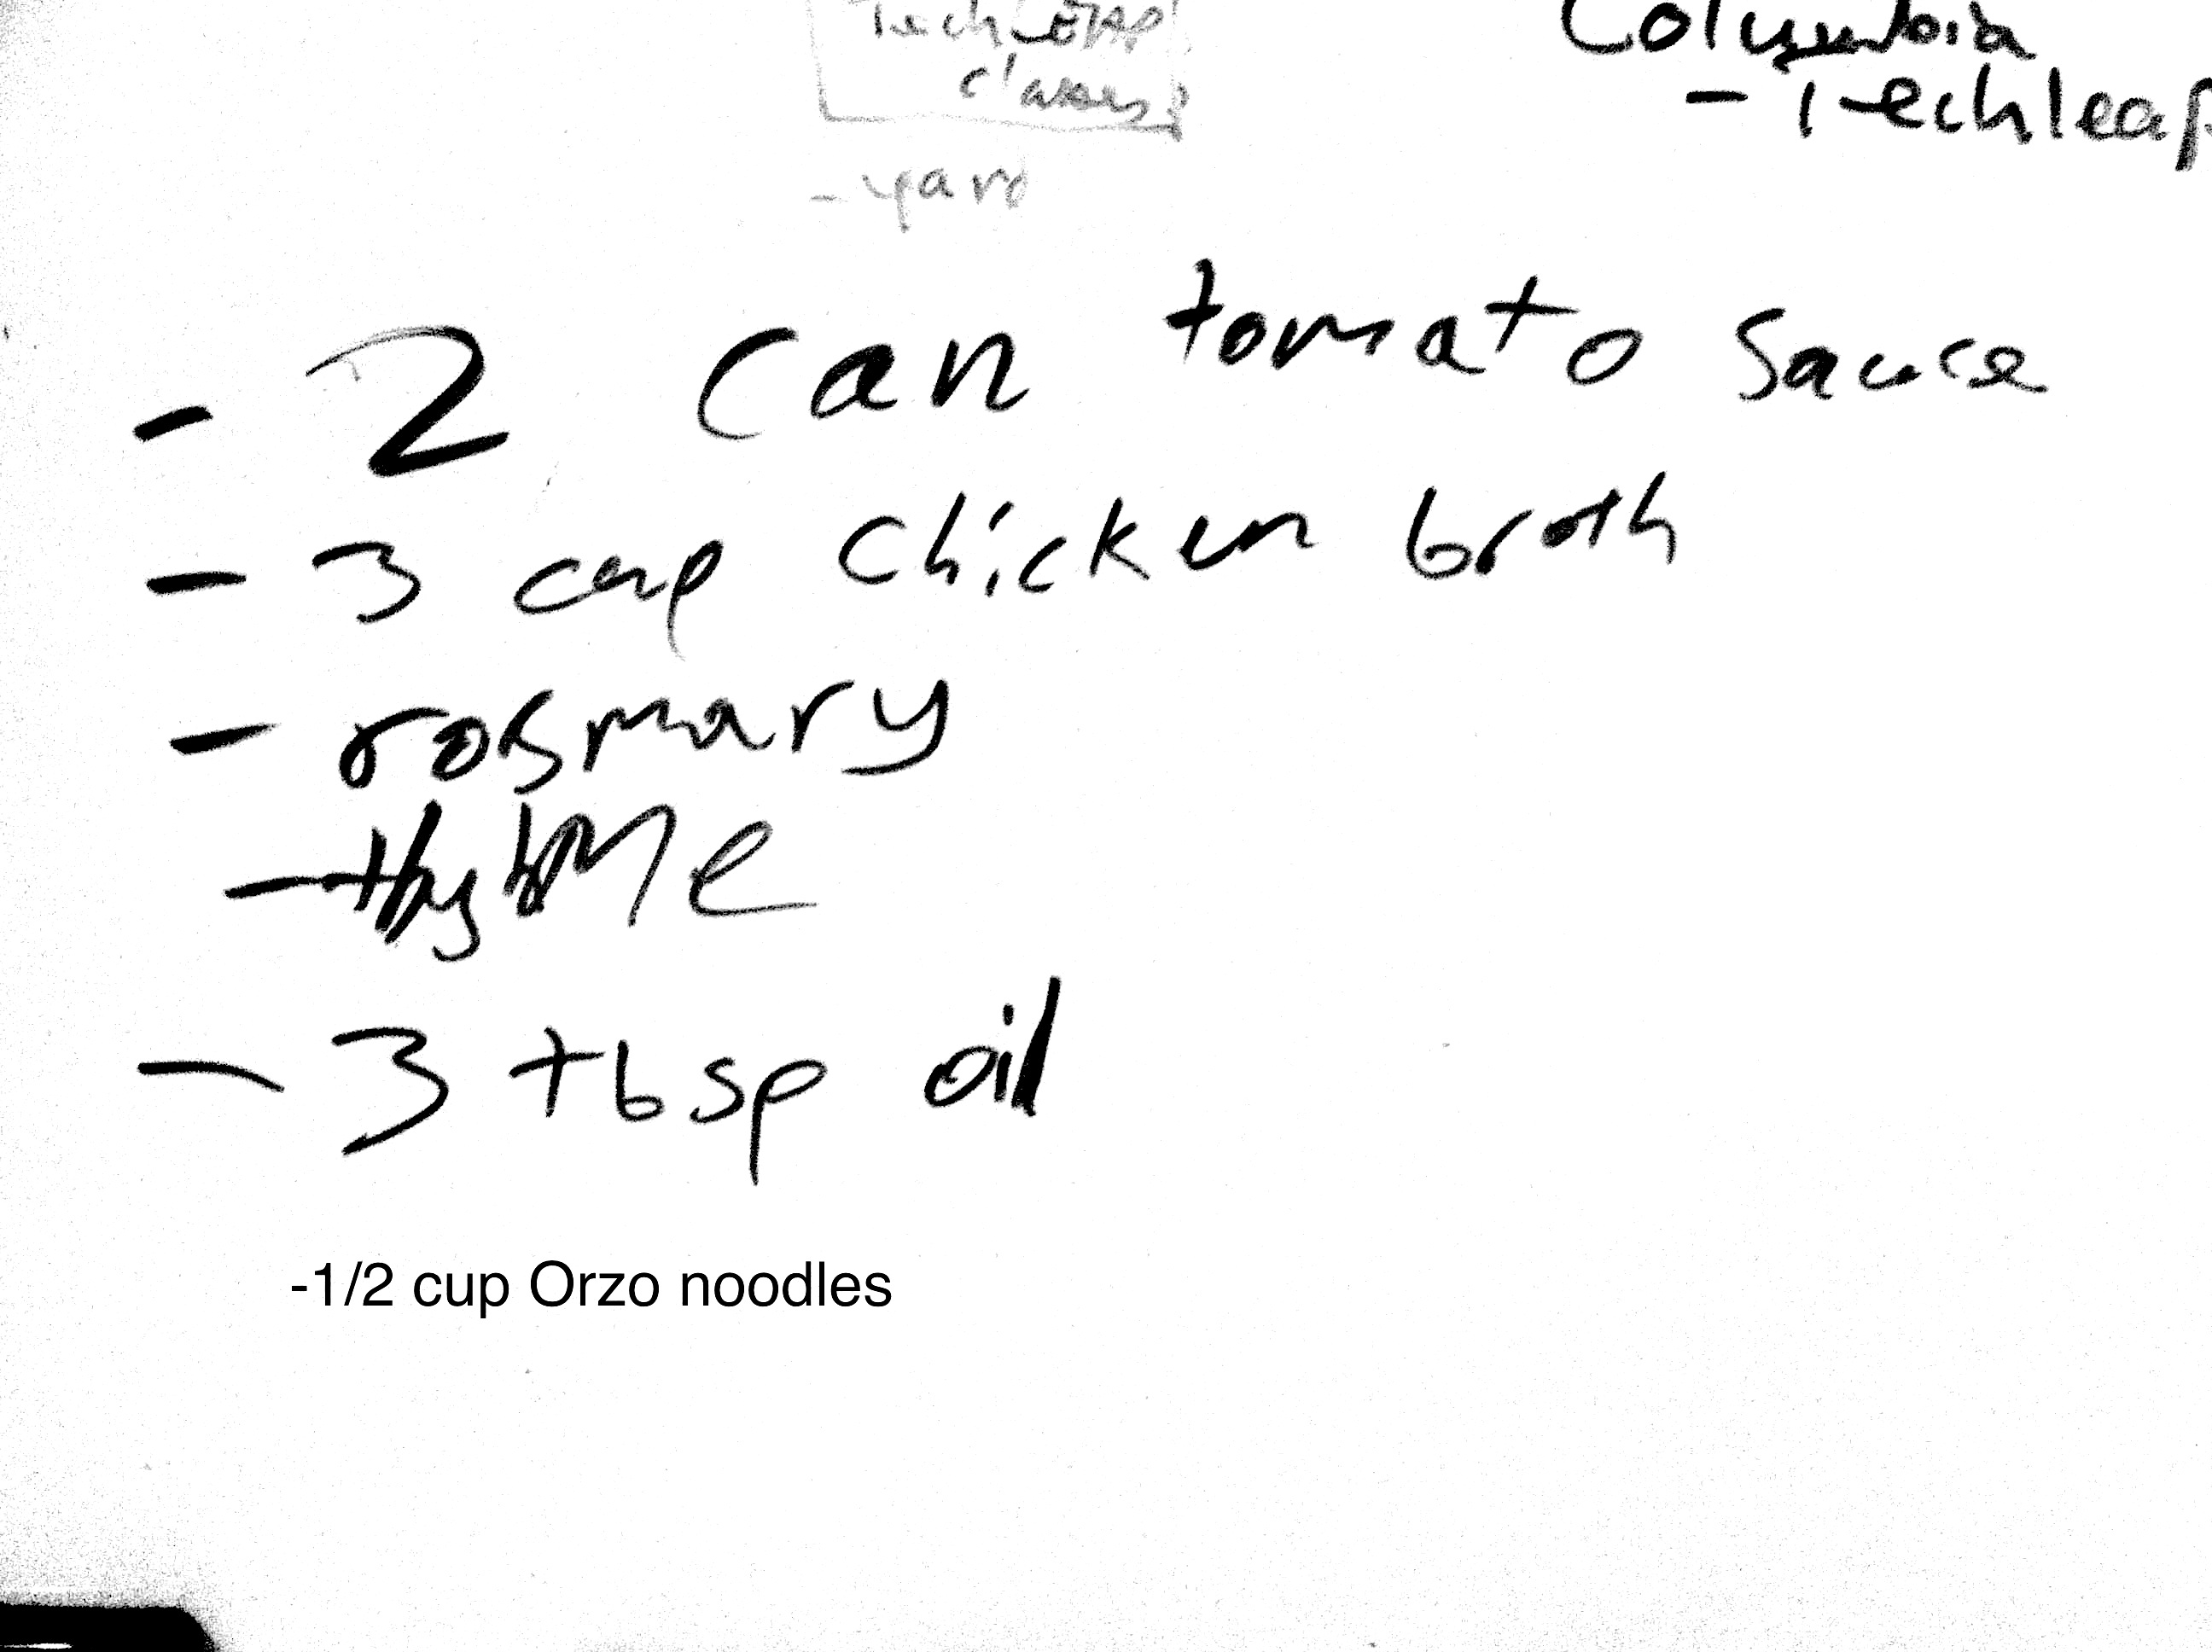 Tech LEAP
classes
- yard
Columbia
- Techleap
- 2 can tomato sauce
- 3 cup chicken broth
- rosmary
- thyme
- 3 tbsp oil
-1/2 cup Orzo noodles